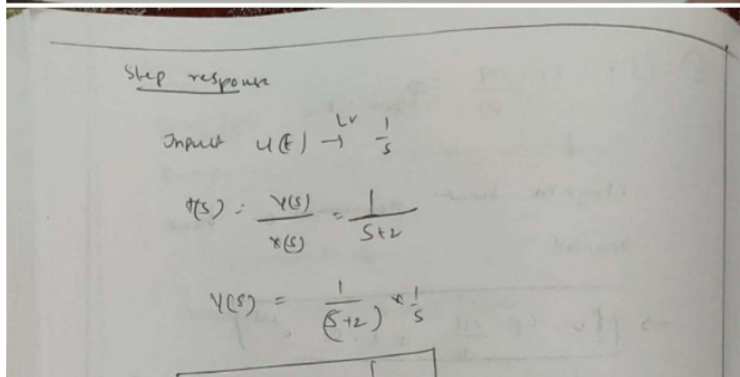 Step response
Input u(t) → LV 1/s
H(s) = Y(s)/X(s) = 1/S+2
Y(S) = 1/(S+2) * 1/s